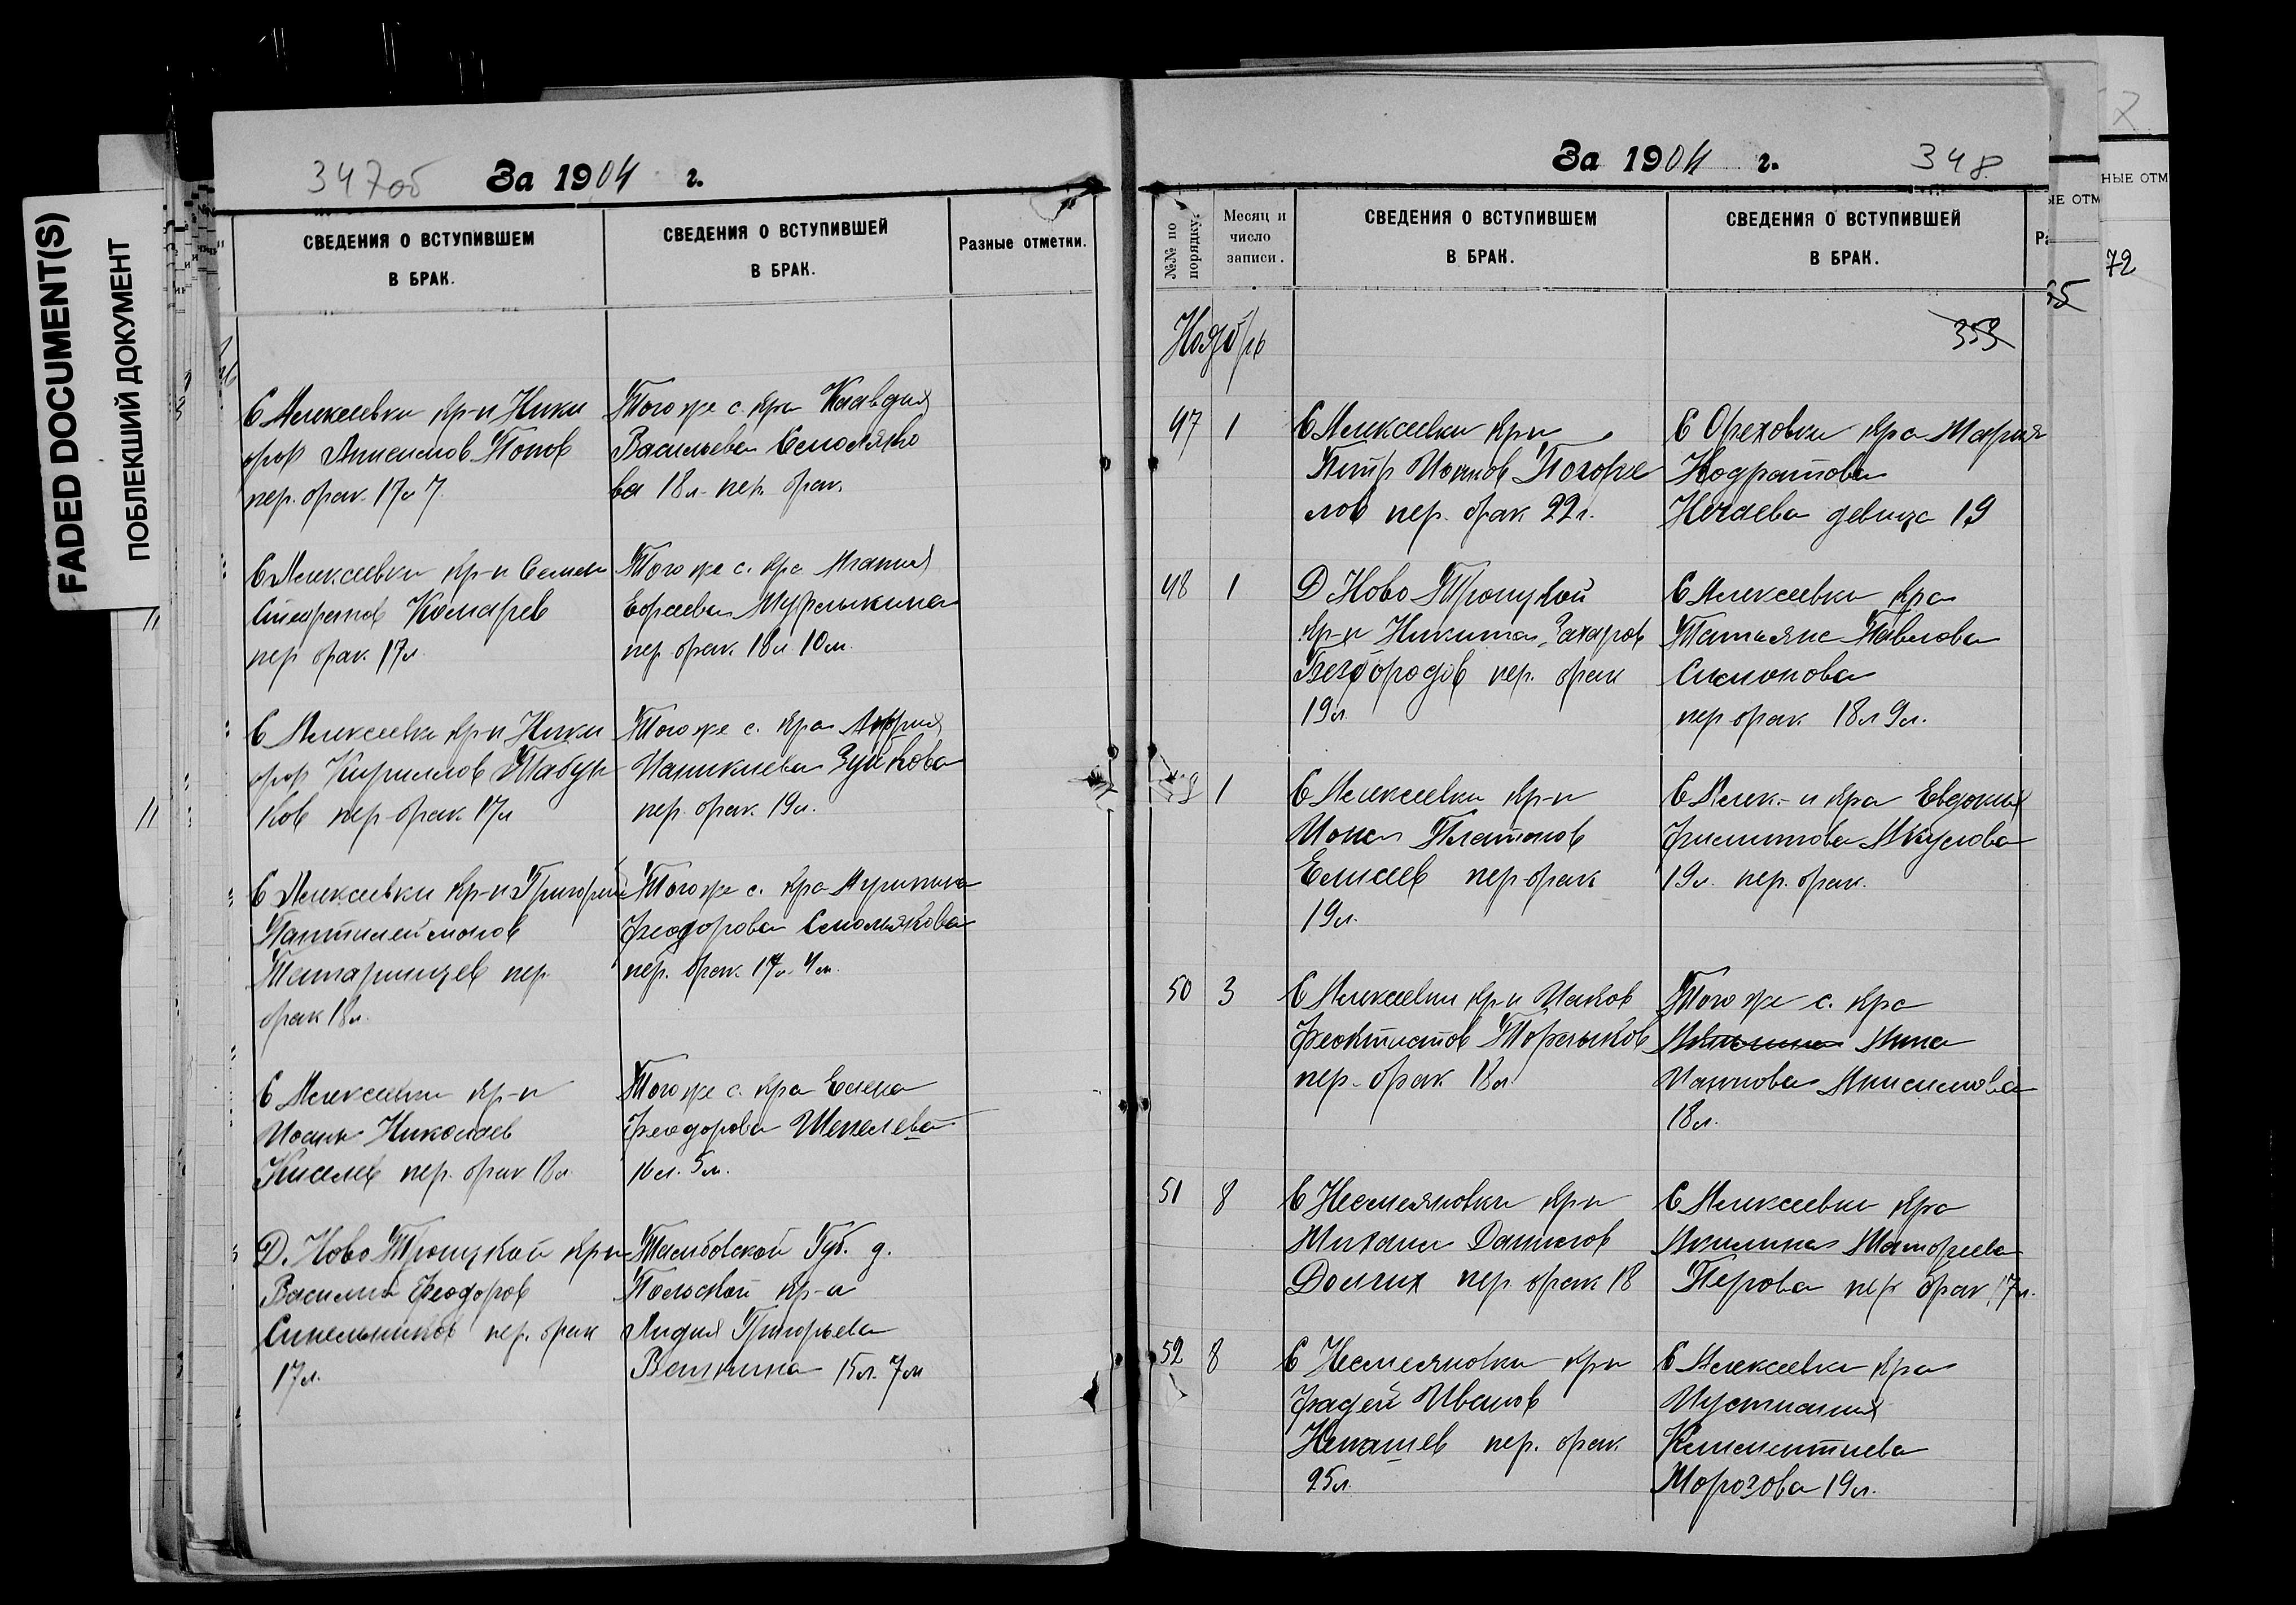 FADED DOCUMENT(S)
ПОБЛЕКШИЙ ДОКУМЕНТ
347об
За 1904 г.
СВЕДЕНИЯ О ВСТУПИВШЕМ
В БРАК.
СВЕДЕНИЯ О ВСТУПИВШЕЙ
В БРАК.
Разные отметки.
С Алексеевки кр-н Ники
фор Анисимов Попов
пер. брак. 17л 7
Того же с. кра Клавдия
Васильева Смоляко
ва 18л. пер. брак.
С Алексеевки кр-н Семен
Комарев
пер брак. 17л.
Того же с. кра Агапия
Мурлыкина
пер брак. 18л. 10м.
С Алексеевки кр-н Ники
фор Кириллов Табун
ков пер брак. 17л
Того же с. кра
Зуйкова
пер. брак. 19л.
С Алексеевки кр-н Григорий
Пантилеймонов
Татаринцев пер.
брак 18л.
Того же с. кра Агрипина
Феодорова Смольякова
пер. брак. 17л. 4м.
С Алексеевки кр-н
Иоанн Николаев
Киселев пер. брак. 18л
Того же с. кра Елена
Феодорова Шепелева
16л. 5м.
Д. Ново Троицкой кр-н
Василий Феодоров
Синельников пер. брак
17л.
Тамбовской Губ. д.
Польской кр-а
Лидия Григорьева
15л. 7м
За 1904 г.
348
№№ по порядку.
Месяц и
число
записи.
СВЕДЕНИЯ О ВСТУПИВШЕМ
В БРАК.
СВЕДЕНИЯ О ВСТУПИВШЕЙ
В БРАК.
НЫЕ ОТМ
72
Ноябрь
353
47 1
С Алексеевки кр-н
Петр Иоанов Погоре
лов пер. брак 22л.
С Ореховки кра Мария
Кодратова
Нечаева девица 19
48 1
Д Ново Троицкой
кр-н Никита Захаров
Безбородов пер. брак
19л.
С Алексеевки кра
Татьяна Павлова
Симонова
пер брак 18л 9м.
1
С Алексеевки кр-н
Иона Платонов
Елисеев пер брак
19л.
С Алек-и кра Евдокия
Филиппова Акулова
19л. пер. брак.
50 3
С Алексеевки кр-н Иаков
Феоктистов Торлыков
пер. брак 18л.
Того же с. кра
Анна
Ианнова Анисимова
18л.
51 8
С Несмеяновки кр-н
Михаил Данилов
Долгих пер. брак 18
С Алексеевки кра
Акилина Матфеева
Перова пер брак. 17л.
52 8
С Несмеяновки кр-н
Фадей Иванов
пер. брак.
25л.
С Алексеевки кра
Иустиния
Климентиева
Морозова 19л.